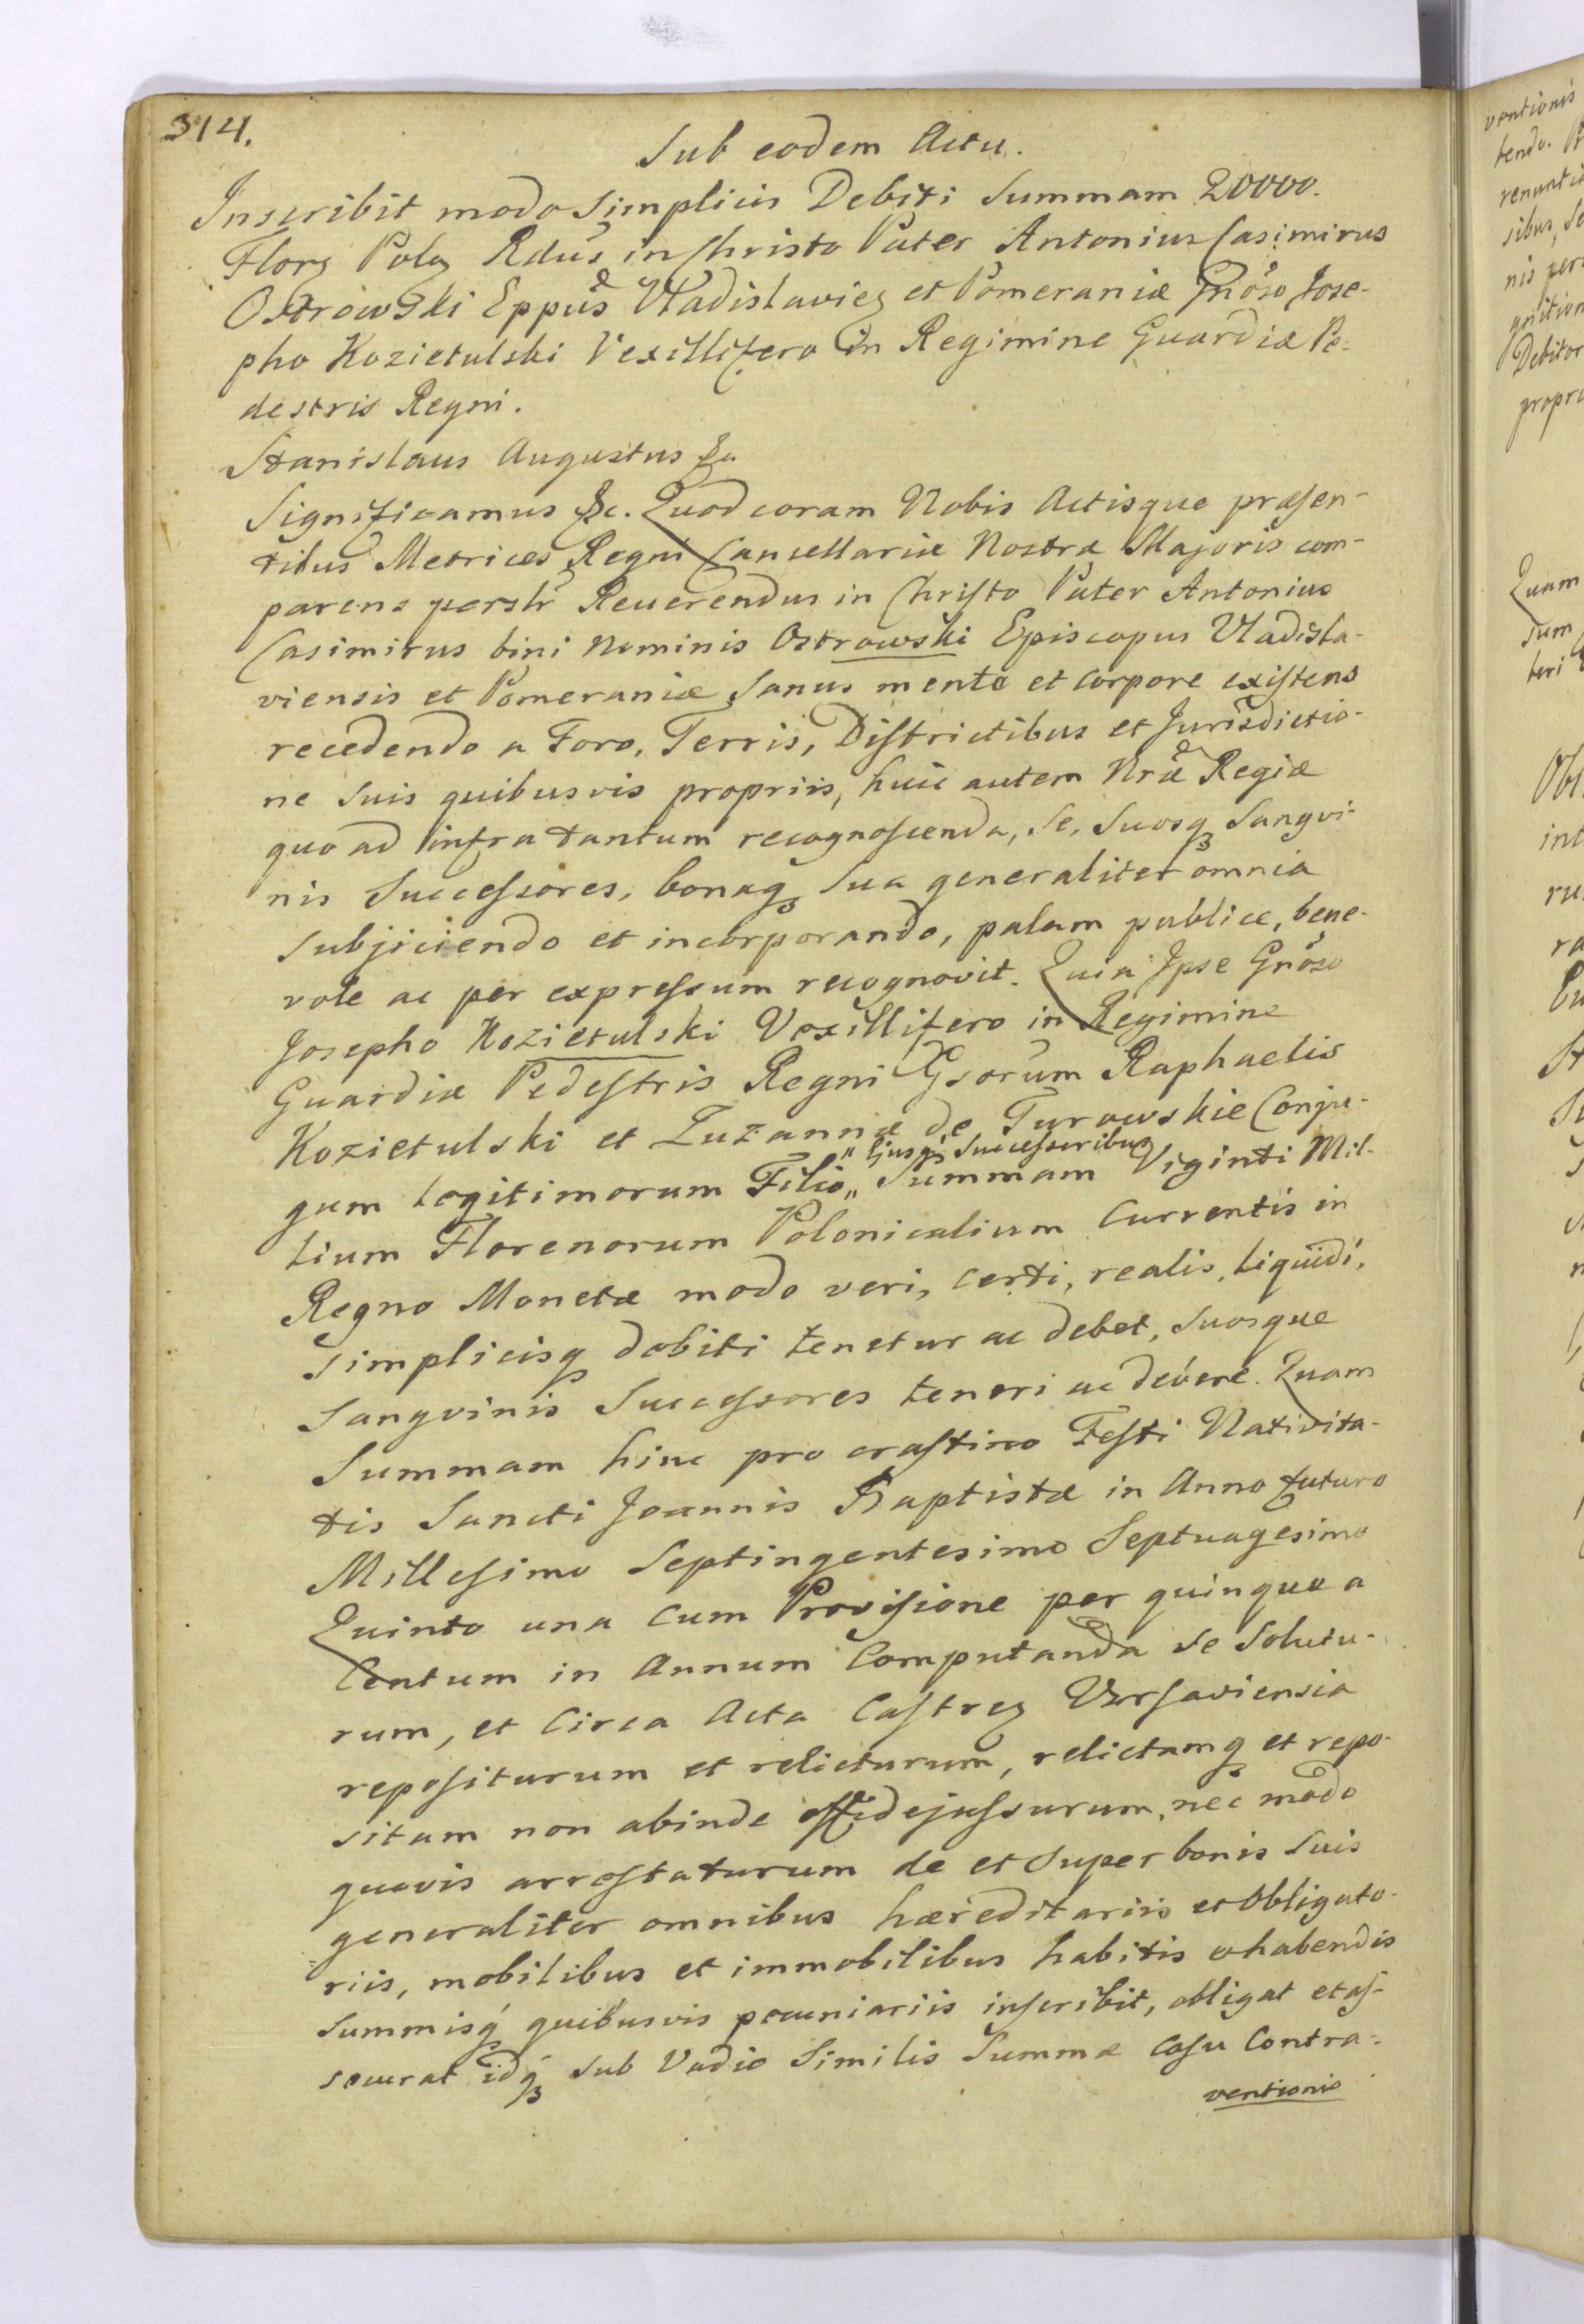 314.
Sub eodem Actu.
Inscribit modo Simplicis Debiti Summam 20000.
Florꝫ Polꝫ Rdus in Christo Pater Antonius Casimirus
Ostrowski Eppus Vladislavieꝫ et Pomeraniæ Gnoso Jose-
pho Kozietulski Vexillifero in Regimine Guardiæ Pe-
destris Regni.
Stanislaus Augustus &a
Significamus &c. Quod coram Nobis Actisque præsen-
tibus Metrices Regni Cancellariæ Nostræ Majoris com-
parens perslr Reuerendus in Christo Pater Antonius
Casimirus bini Nominis Ostrowski Episcopus Vladisla-
viensis et Pomeraniæ Sanus mente et corpore existens
recedendo a Foro, Terris, Districtibus et Jurisdictio-
ne Suis quibusvis propriis, huic autem Nræ Regiæ
quo ad infra tantum recognoscenda, Se, Suosqꝫ Sangvi-
nis Successores, bonaqꝫ Sua generaliter omnia
Subjiciendo et incorporando, palam publice, bene-
vole ac per expressum recognovit. Quia Ipse Gnoso
Josepho Kozietulski Vexillifero in Regimine
Guardiæ Pedestris Regni Gsorum Raphaelis
Kozietulski et Zuzannæ de Turowskie Conju-
gum legitimorum Filio „ Ejusqꝫ Successoribus „ Summam Viginti Mil-
lium Florenorum Polonicalium Currentis in
Regno Monetæ modo veri, certi, realis, liquidi,
Simplicisqꝫ debiti tenetur ac debet, Suosque
Sangvinis Successores teneri ac devere. Quam
Summam hinc pro crastino Festi Nativita-
tis Sancti Joannis Baptistæ in Anno futuro
Millesimo Septingentesimo Septuagesimo
Quinto una cum Provisione per quinque a
Centum in Annum Computanda se Solutu-
rum, et Circa Acta Castreꝫ Varsaviensia
repositurum et relicturum, relictamqꝫ et repo-
sitam non abinde effidejussurum, nec modo
quovis arrestaturum de et Super bonis Suis
generaliter omnibus hæreditariis et Obligato-
riis, mobilibus et immobilibus habitis et habendis
Summisqꝫ quibusvis pecuniariis inscribit, obligat et as-
securat idqꝫ Sub Vadio Similis Summæ Casu Contra-
ventionis
ventionis
tendo.
sibus, Se
Debitor
Quam
Sum
teri